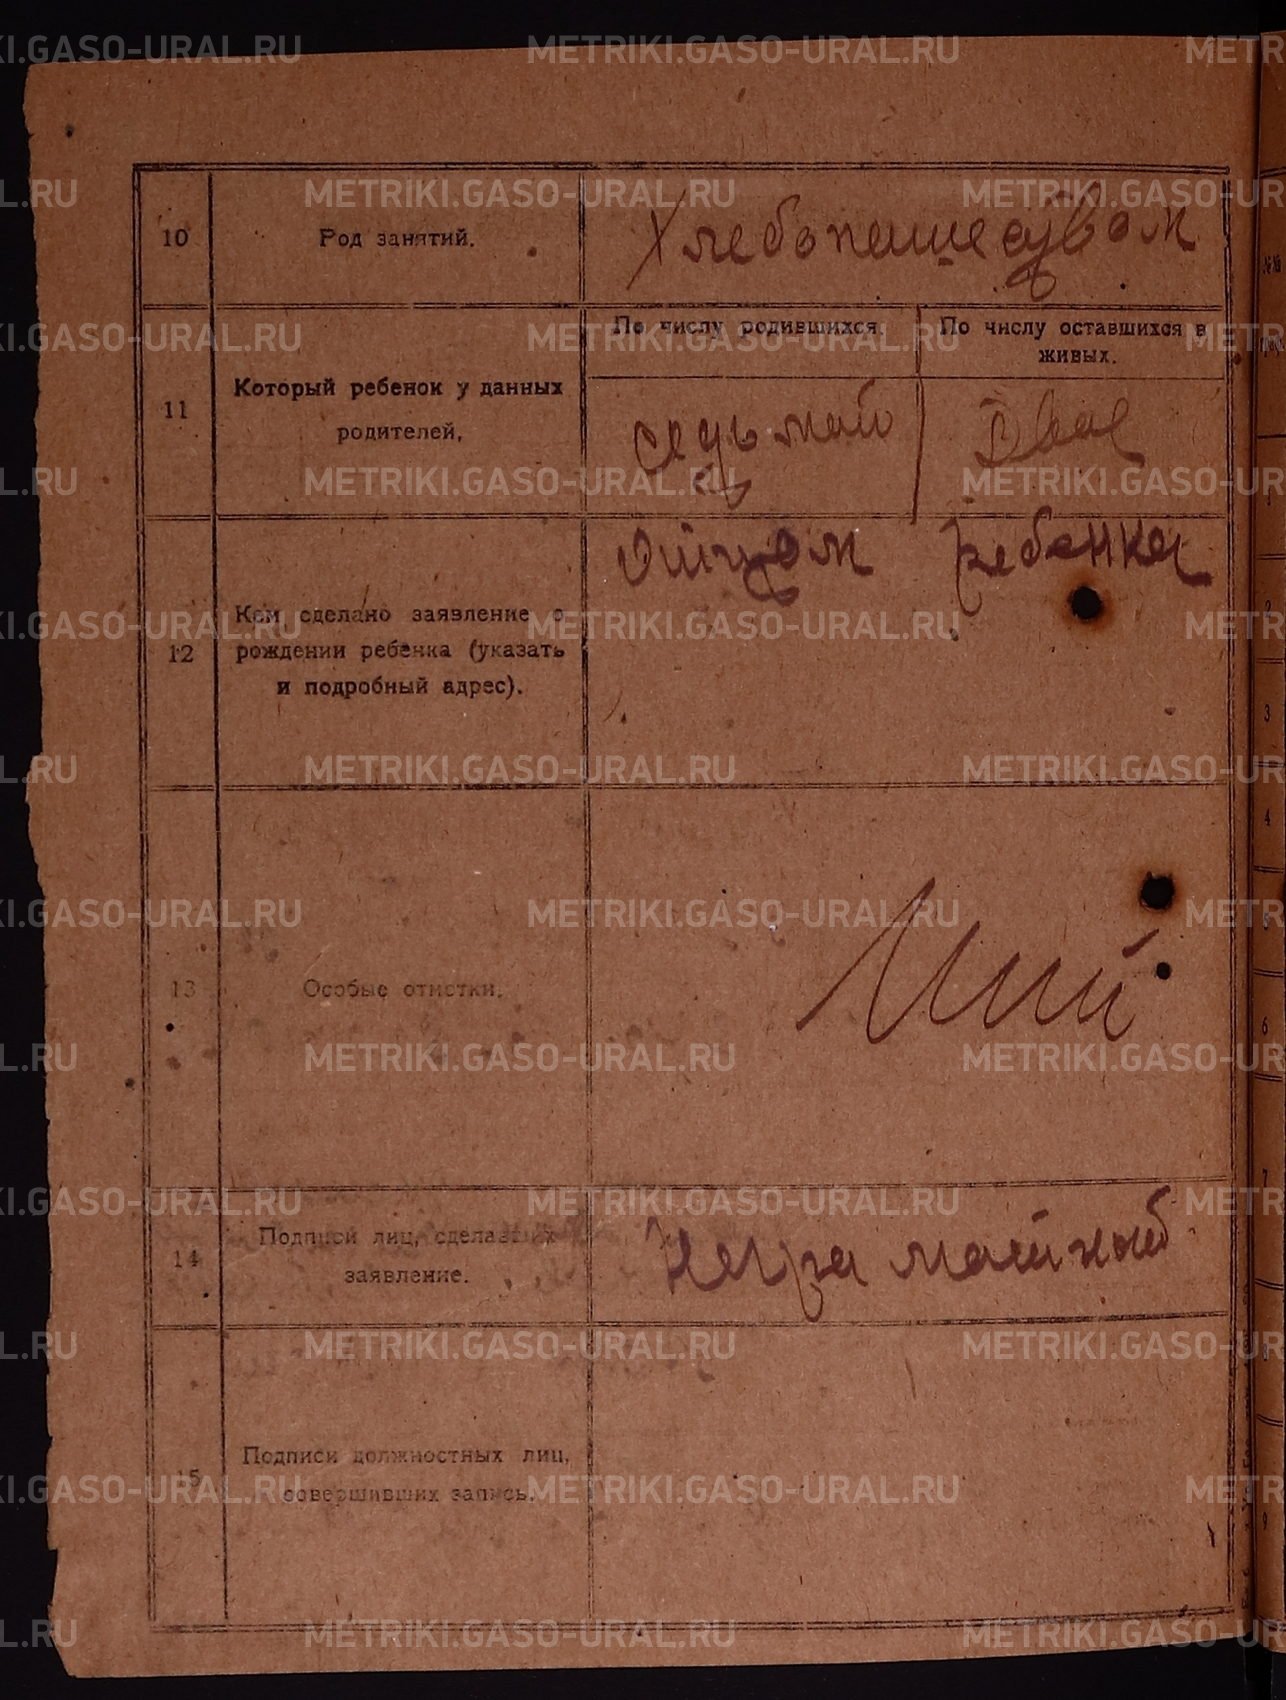 METRIKI.GASO-URAL.RU
10
Род занятий.
Хлебопашеством
11
Который ребенок у данных
родителей,
По числу родившихся.
По числу оставшихся в
живых.
седьмой
Двое
12
Кем сделано заявление о
рождении ребенка (указать
и подробный адрес).
Отцом ребенка
13
Особые отметки.
14
Подписи лиц, сделавших
заявление.
15
Подписи должностных лиц,
совершивших запись.